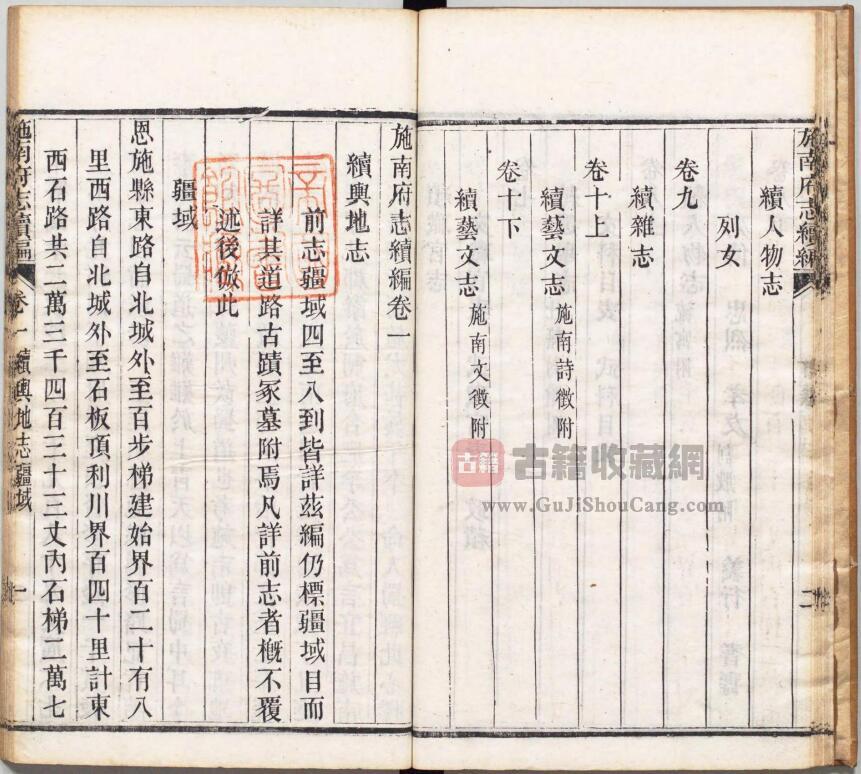 施南府志續編
續人物志
列女
卷九
續雜志
卷十上
續藝文志 施南詩徵附
卷十下
續藝文志 施南文徵附
二
施南府志續編卷一
續輿地志
前志疆域四至八到皆詳茲編仍標疆域目而
詳其道路古蹟冢墓附焉凡詳前志者槪不覆
述後倣此
疆域
恩施縣東路自北城外至百步梯建始界百二十有八
里西路自北城外至石板頂利川界百四十里計東
西石路共二萬三千四百三十三丈內石梯二萬七
施南府志續編
卷一 續輿地志疆域
一
古籍
古籍收藏網
www.GuJiShouCang.com